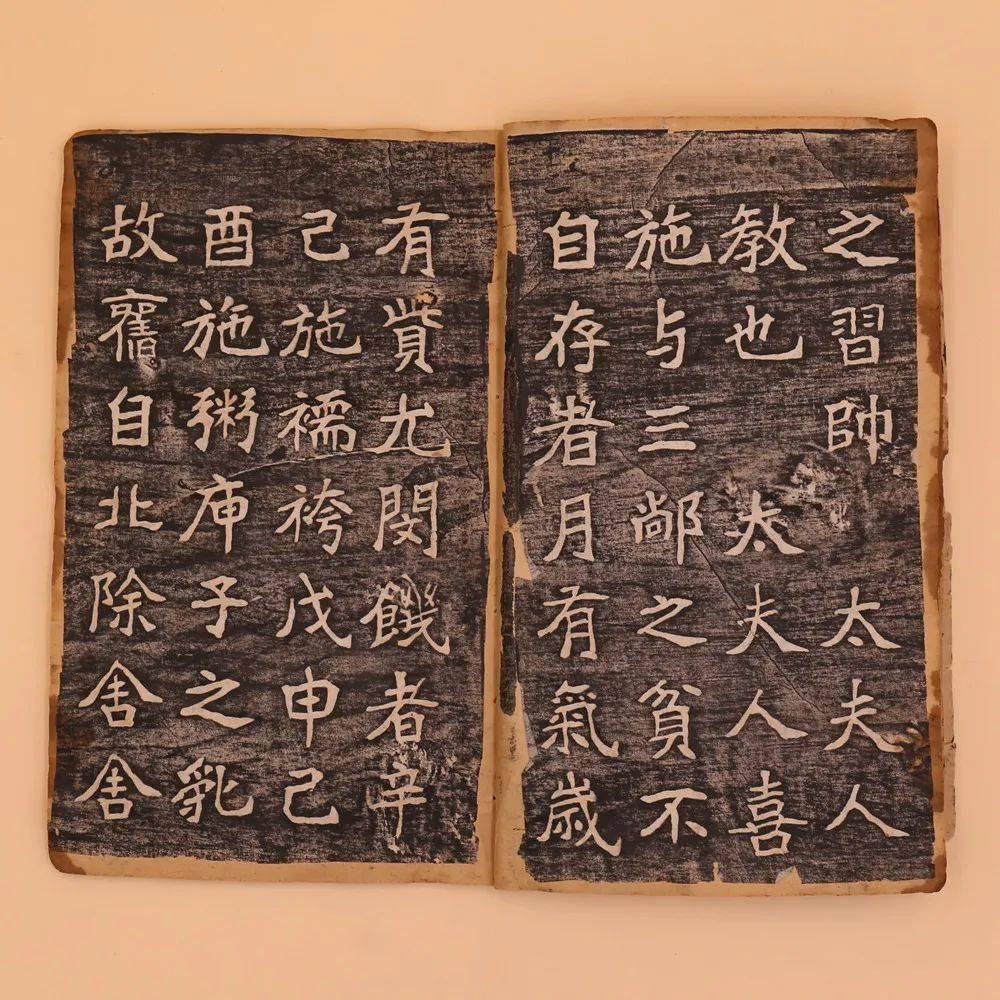 之習帥 太夫人
教也 太夫人喜
施与三之貧不
自存者月有氣歲
有貲尤閔饑者辛
己施襦袴戊申己
酉施粥庚子之亂
故舊自北除舍舍